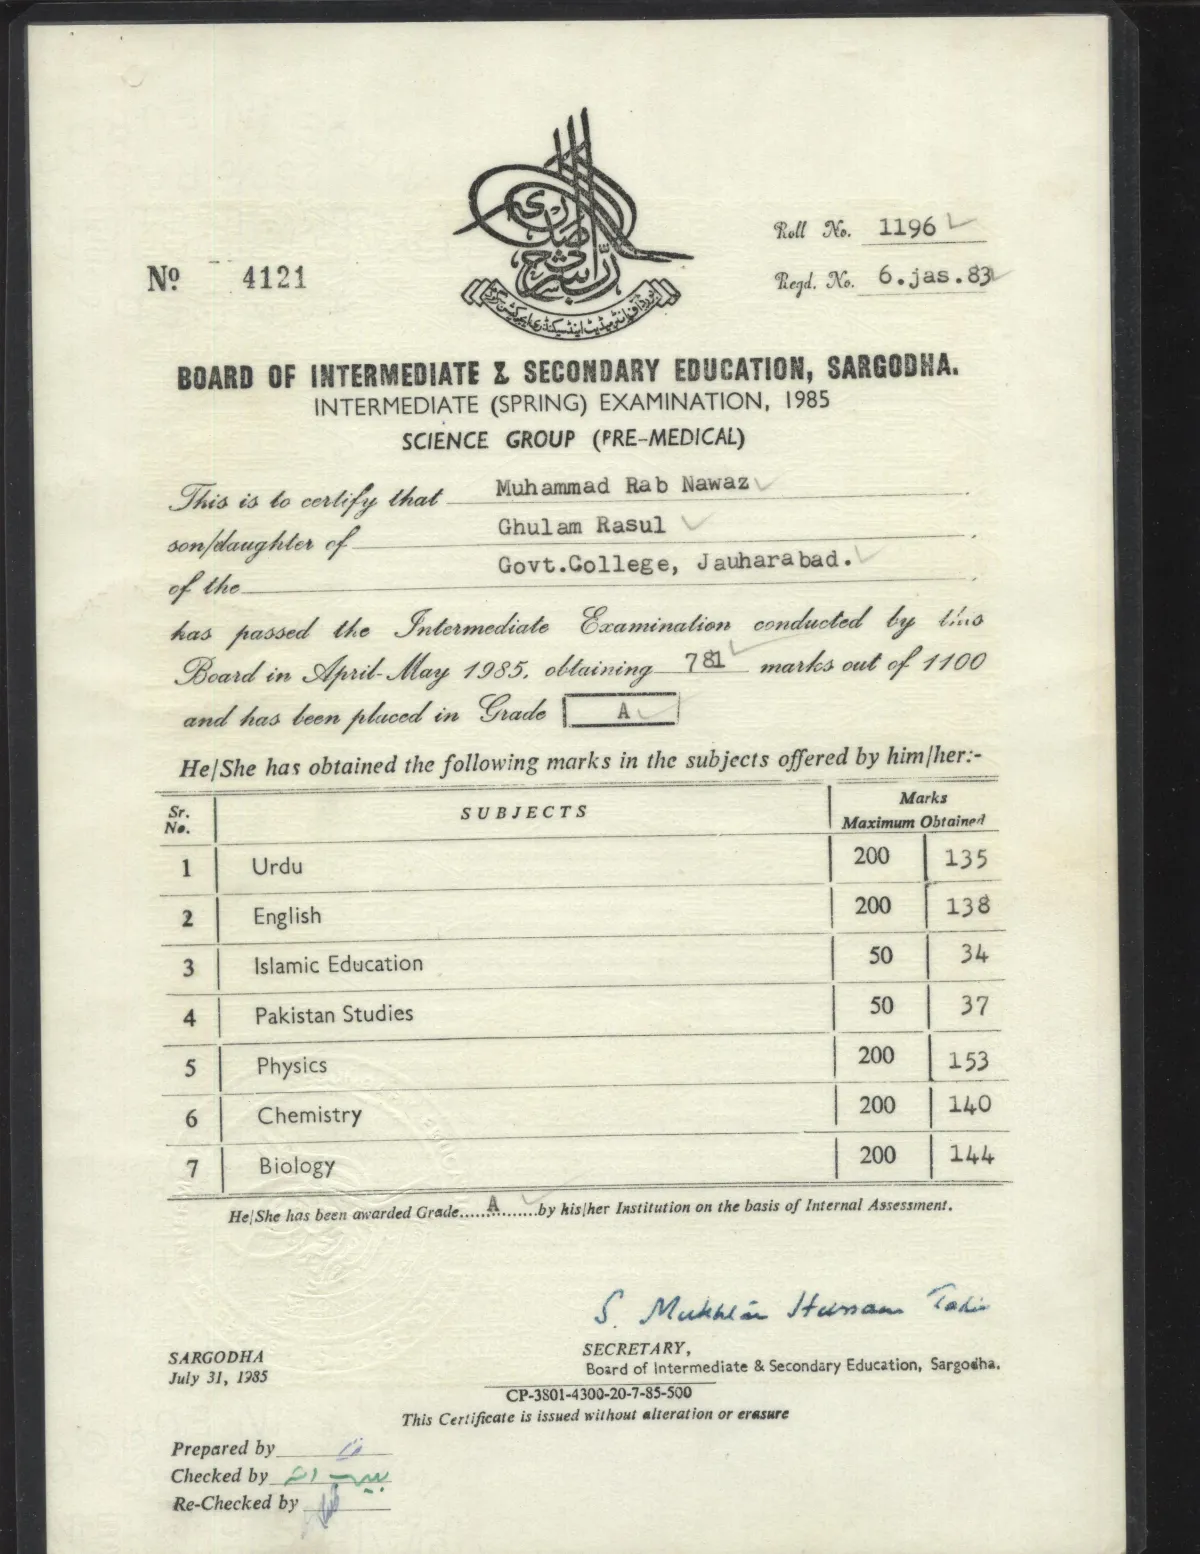 Roll No. 1196
Nº 4121
Regd. No. 6.jas.83
BOARD OF INTERMEDIATE & SECONDARY EDUCATION, SARGODHA.
INTERMEDIATE (SPRING) EXAMINATION, 1985
SCIENCE GROUP (PRE-MEDICAL)
This is to certify that Muhammad Rab Nawaz
son/daughter of Ghulam Rasul
of the Govt.College, Jauharabad.
has passed the Intermediate Examination conducted by this
Board in April-May 1985, obtaining 781 marks out of 1100
and has been placed in Grade A
He/She has obtained the following marks in the subjects offered by him/her:-
Sr. No. SUBJECTS Marks
Maximum Obtained
1 Urdu 200 135
2 English 200 138
3 Islamic Education 50 34
4 Pakistan Studies 50 37
5 Physics 200 153
6 Chemistry 200 140
7 Biology 200 144
He/She has been awarded Grade.....A.....by his/her Institution on the basis of Internal Assessment.
S. Mukhtar Hussain
SARGODHA
July 31, 1985
SECRETARY,
Board of Intermediate & Secondary Education, Sargodha.
CP-3801-4300-20-7-85-500
This Certificate is issued without alteration or erasure
Prepared by
Checked by
Re-Checked by